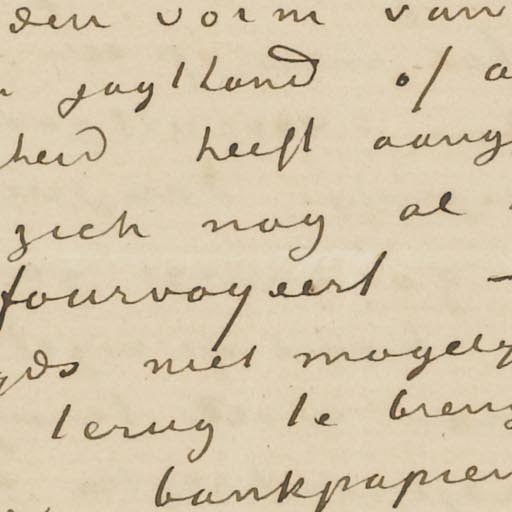 den vorm van
jaglhond of a
heid heeft aang
zich nog al
fourvoyeert -
yds niet mogely
terug te breng
bankpapier